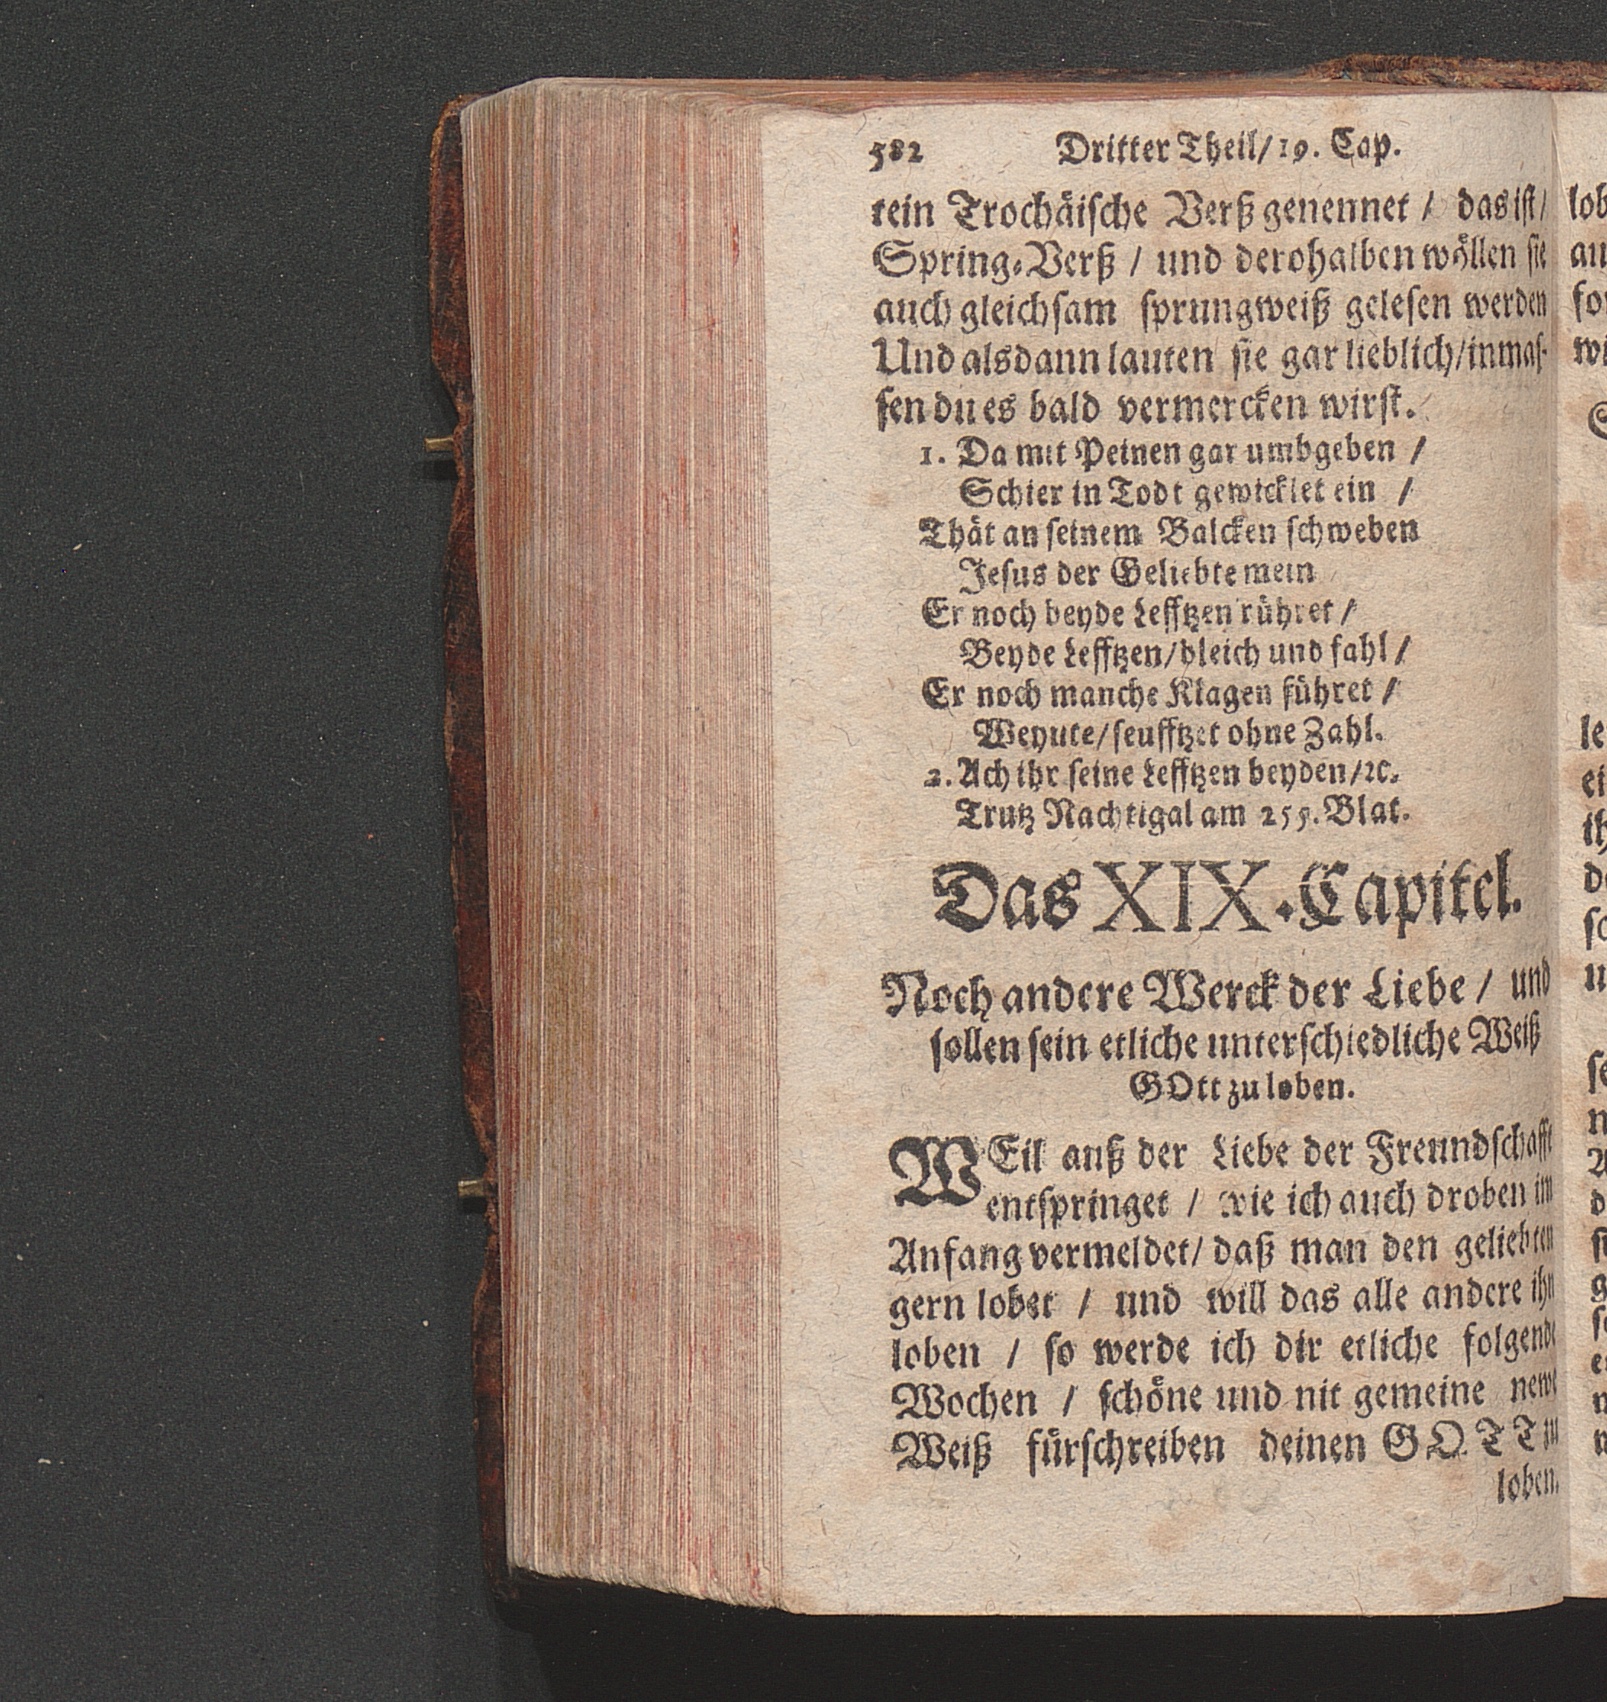 582 Dritter Theil/19. Cap.
tein Trochäische Verß genennet / das ist/
Spring-Verß / und derohalben wöllen sie
auch gleichsam sprungweiß gelesen werden
Und alsdann lauten sie gar lieblich/inmas-
sen du es bald vermercken wirst.
1. Da mit Peinen gar umbgeben /
Schier in Todt gewicklet ein /
Thät an seinem Balcken schweben
Jesus der Geliebte mein
Er noch beyde Lefftzen rühret /
Beyde Lefftzen/bleich und fahl /
Er noch manche Klagen führet /
Weynte/seufftzet ohne Zahl.
2. Ach ihr seine Lefftzen beyden/ꝛc.
Trutz Nachtigal am 255. Blat.
Das XIX. Capitel.
Noch andere Werck der Liebe / und
sollen sein etliche unterschiedliche Weiß
GOtt zu loben.
WEil auß der Liebe der Freundschafft
entspringet / wie ich auch droben im
Anfang vermeldet/ daß man den geliebten
gern lobet / und will das alle andere ihn
loben / so werde ich dir etliche folgende
Wochen / schöne und nit gemeine newe
Weiß fürschreiben deinen GOTT zu
loben.